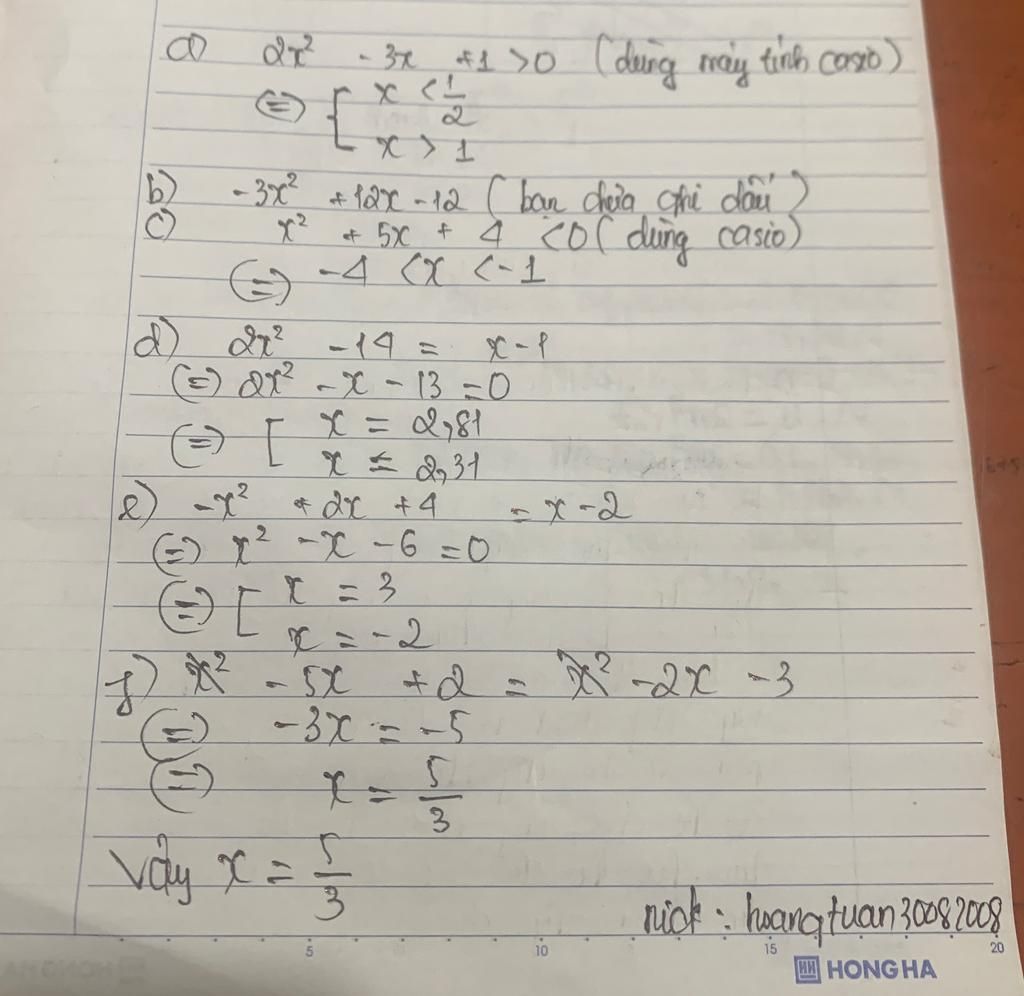 a) 2x² - 3x + 1 > 0 (dùng máy tính casio)
(=) [ x < 1/2
x > 1
b) -3x² + 12x - 12 (bạn chưa ghi dấu)
c) x² + 5x + 4 < 0 (dùng casio)
(=) -4 < x < -1
d) 2x² - 14 = x - 1
(=) 2x² - x - 13 = 0
(=) [ x = 2,81
x = 2,31
e) -x² + 2x + 4 = x - 2
(=) x² - x - 6 = 0
(=) [ x = 3
x = -2
f) x² - 5x + 2 = x² - 2x - 3
(=) -3x = -5
(=) x = 5/3
Vậy x = 5/3
nick : hoangtuan30082008
5 10 15 20
HONG HA